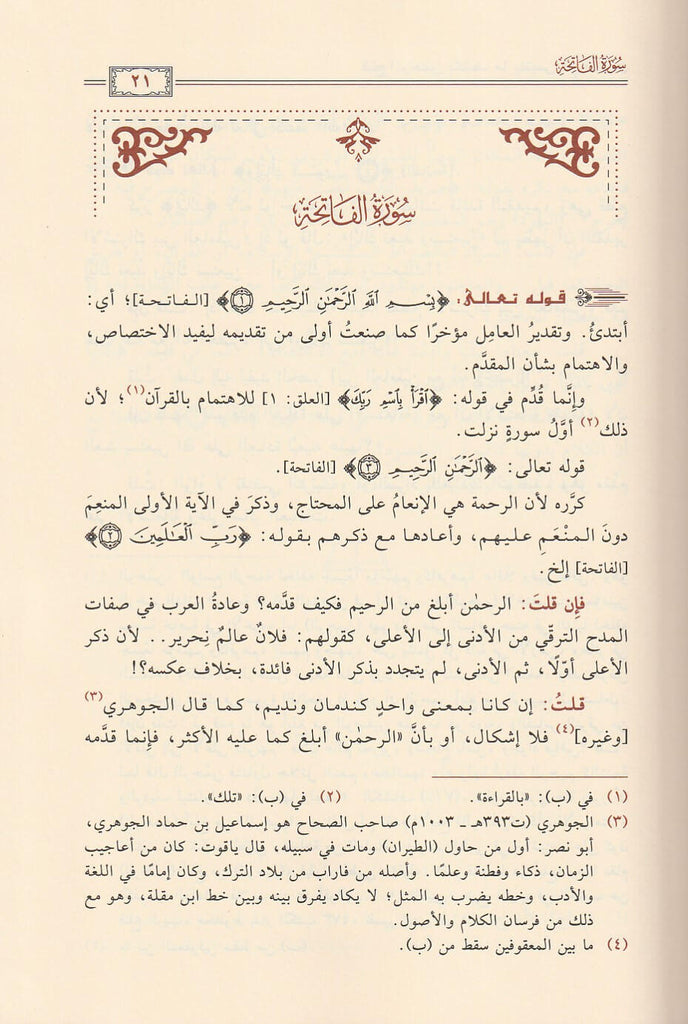 سُورَةُ الفَاتِحَةِ
٢١
سُورَةُ الفَاتِحَةِ
قوله تعالى: ﴿بِسْمِ اللَّهِ الرَّحْمَٰنِ الرَّحِيمِ ۝١﴾ [الفاتحة]؛ أي:
أبتدئُ. وتقديرُ العامِل مؤخرًا كما صنعتُ أولى من تقديمه ليفيد الاختصاص،
والاهتمام بشأن المقدَّم.
وإنَّما قُدِّم في قوله: ﴿اقْرَأْ بِاسْمِ رَبِّكَ﴾ [العلق: ١] للاهتمام بالقرآن(١)؛ لأن
ذلك(٢) أوَّلُ سورةٍ نزلت.
قوله تعالى: ﴿الرَّحْمَٰنِ الرَّحِيمِ ۝٣﴾ [الفاتحة].
كرَّره لأن الرحمة هي الإنعامُ على المحتاج، وذكرَ في الآية الأولى المنعِمَ
دونَ المنْعَمِ عليهم، وأعادها مع ذكرهم بقوله: ﴿رَبِّ الْعَالَمِينَ ۝٢﴾
[الفاتحة] إلخ.
فإن قلتَ: الرحمٰن أبلغ من الرحيم فكيف قدَّمه؟ وعادةُ العرب في صفات
المدح الترقّي من الأدنى إلى الأعلى، كقولهم: فلانٌ عالمٌ نِحرير.. لأن ذكر
الأعلى أوّلًا، ثم الأدنى، لم يتجدد بذكر الأدنى فائدة، بخلاف عكسه؟!
قلتُ: إن كانا بمعنى واحدٍ كندمان ونديم، كما قال الجوهري(٣)
[وغيره](٤) فلا إشكال، أو بأنَّ «الرحمٰن» أبلغ كما عليه الأكثر، فإنما قدَّمه
(١) في (ب): «بالقراءة». (٢) في (ب): «تلك».
(٣) الجوهري (ت٣٩٣هـ ـ ١٠٠٣م) صاحب الصحاح هو إسماعيل بن حماد الجوهري،
أبو نصر: أول من حاول (الطيران) ومات في سبيله، قال ياقوت: كان من أعاجيب
الزمان، ذكاء وفطنة وعلمًا. وأصله من فاراب من بلاد الترك، وكان إمامًا في اللغة
والأدب، وخطه يضرب به المثل؛ لا يكاد يفرق بينه وبين خط ابن مقلة، وهو مع
ذلك من فرسان الكلام والأصول.
(٤) ما بين المعقوفين سقط من (ب).